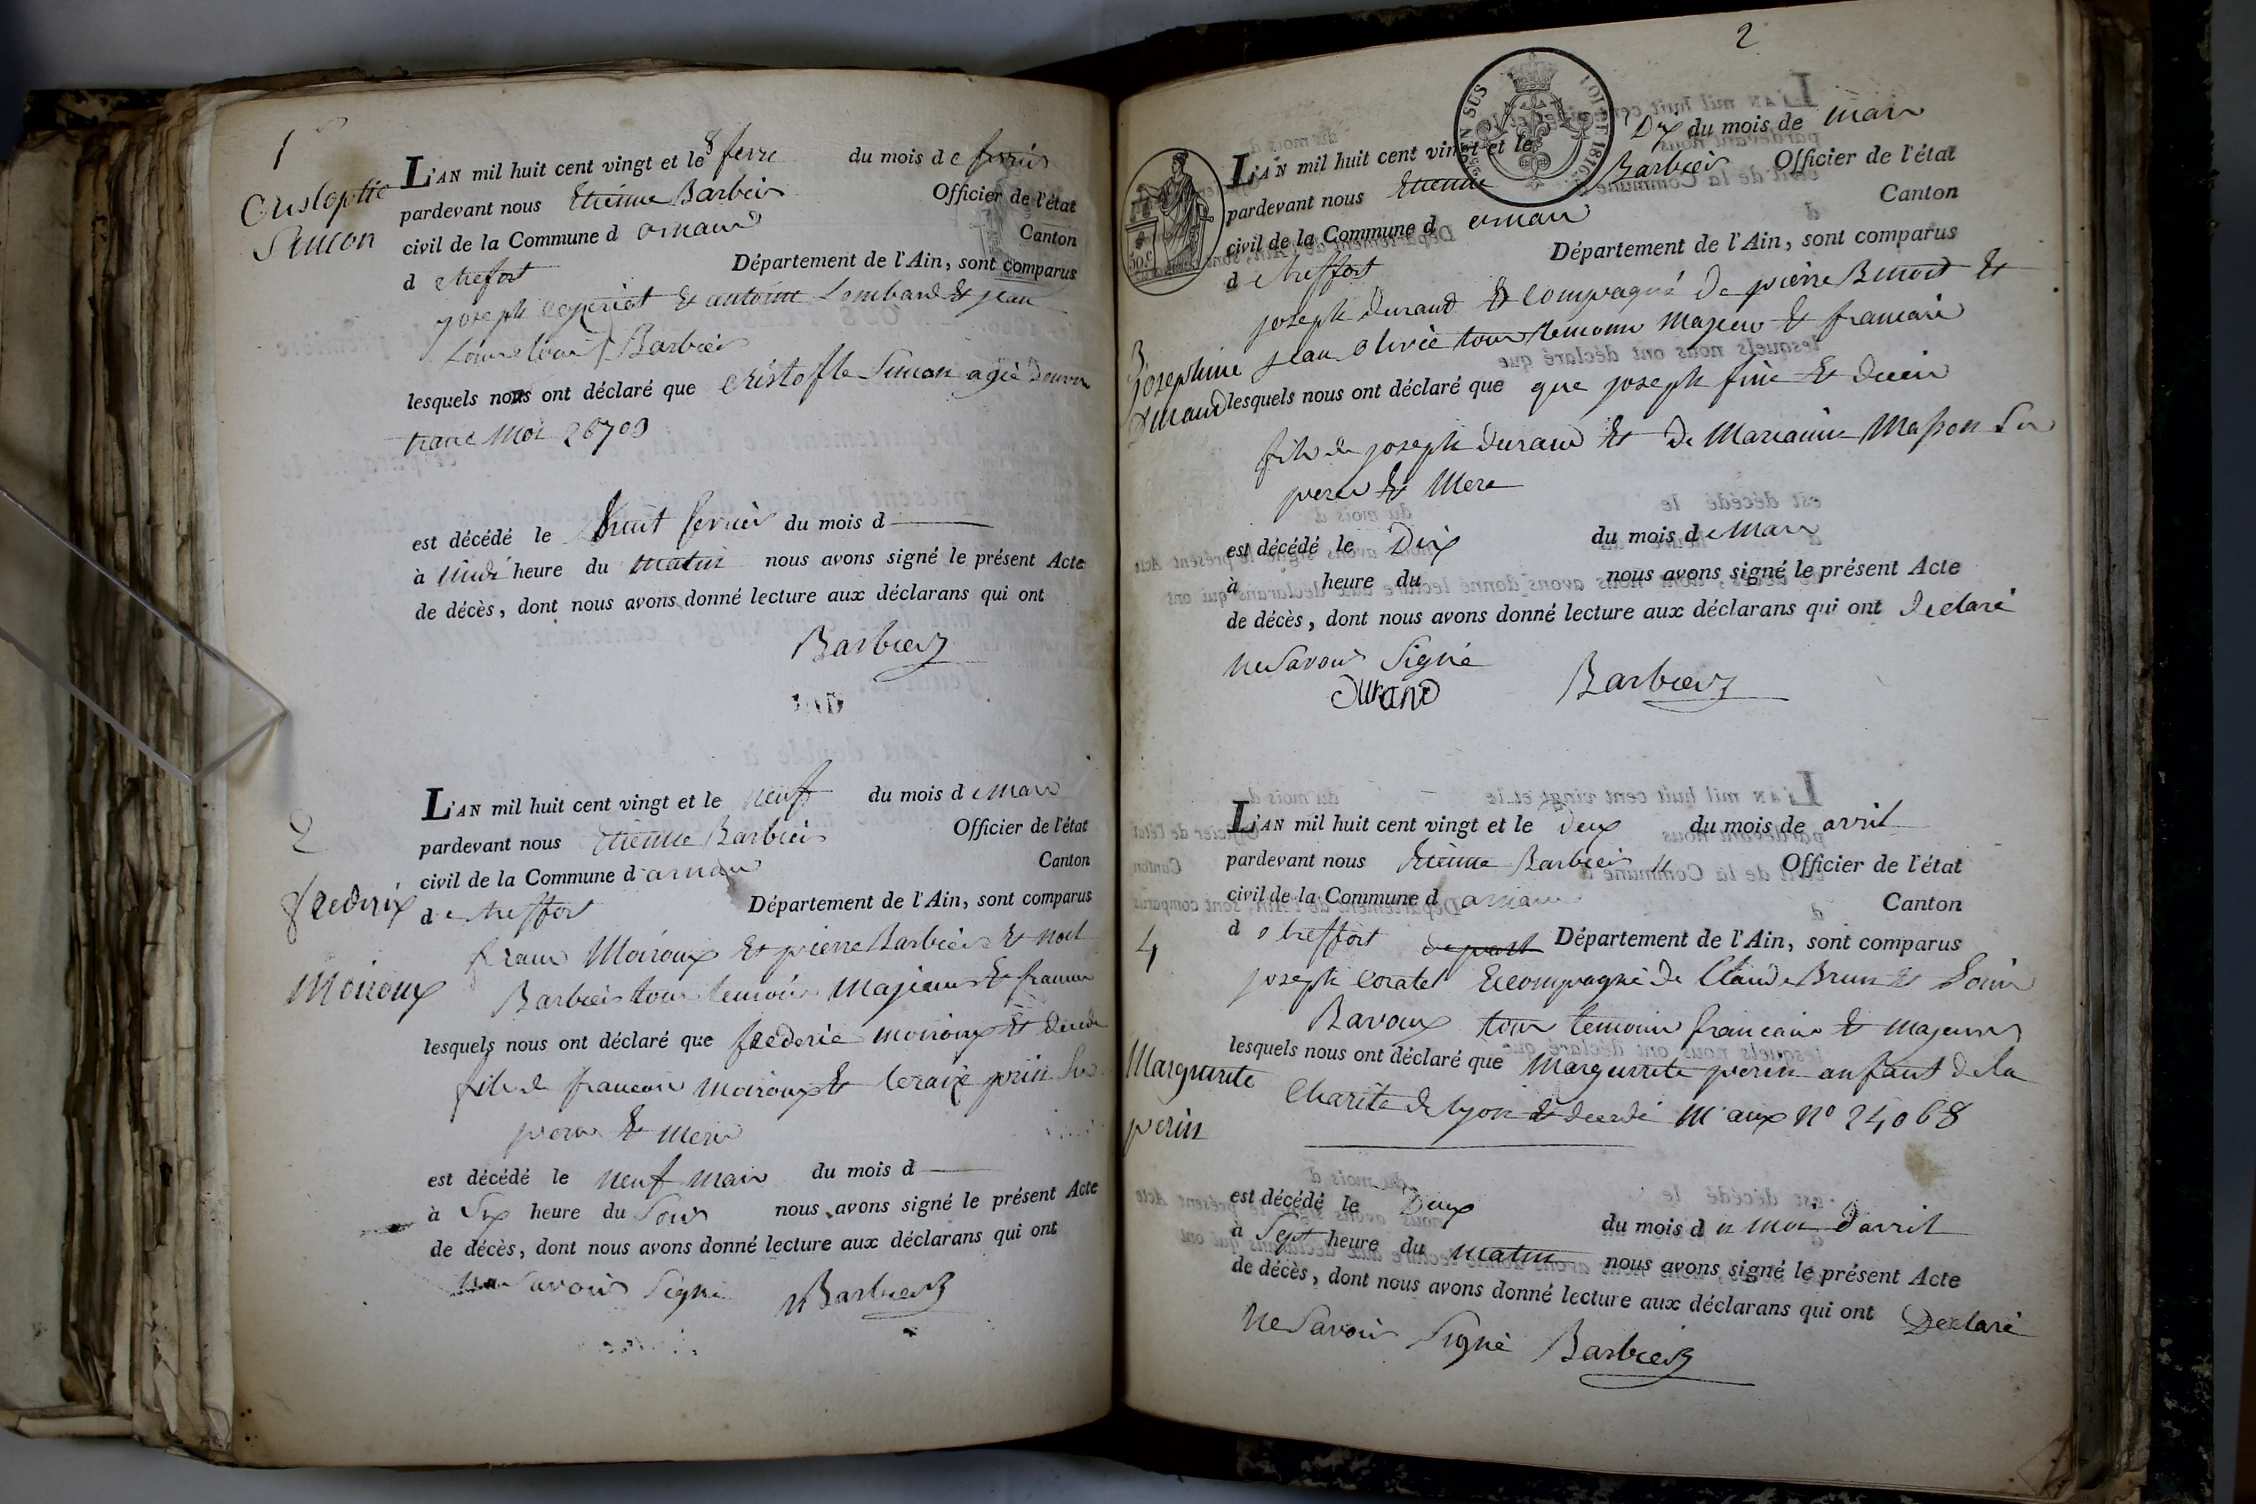 1
Cristophe
Simon
L'AN mil huit cent vingt et le 8 fevre du mois de fevrier
pardevant nous Etienne Barbier Officier de l'état
civil de la Commune d arnans Canton
d e treffort Département de l'Ain, sont comparus
joseph & antoine Lombard & jean
Barbier
lesquels nous ont déclaré que Cristofle Simon agé
moi 26709
est décédé le huit fevrier du mois d
à heure du matin nous avons signé le présent Acte
de décès, dont nous avons donné lecture aux déclarans qui ont
Barbier
2
frederix
Moiroux
L'AN mil huit cent vingt et le neuf du mois d e mars
pardevant nous Etienne Barbier Officier de l'état
civil de la Commune d arnans Canton
d e treffort Département de l'Ain, sont comparus
Moiroux Et pierre Barbier & noel
Barbier tous temoins Majeurs &
lesquels nous ont déclaré que frederic moiroux Et decede
fils de francois moiroux & perin Ses
peres & mere
est décédé le neuf mars du mois d
à Six heure du Soir nous avons signé le présent Acte
de décès, dont nous avons donné lecture aux déclarans qui ont
Savoir Signe Barbier
2
L'AN mil huit cent vingt et le Dix du mois de mars
pardevant nous Etienne Barbier Officier de l'état
civil de la Commune d arnans Canton
d e treffort Département de l'Ain, sont comparus
50 c.
joseph Durand & compagné De pierre Benoit &
jean olivié tous temoins Majeur & francais
3
josephine
Durand
lesquels nous ont déclaré que que joseph fine Et
fils de joseph durand & De Marianne Masson Ses
peres & Mere
est décédé le Dix du mois d e Mars
à heure du nous avons signé le présent Acte
de décès, dont nous avons donné lecture aux déclarans qui ont declaré
ne Savoir Signé
Durand Barbier
L'AN mil huit cent vingt et le deux du mois de avril
pardevant nous Etienne Barbier Officier de l'état
civil de la Commune d arnans Canton
d e treffort Département de l'Ain, sont comparus
4
joseph Coratel accompagné de Claude Brun & Louis
Bavoux tous temoins francais & majeurs
Marguerite
perin
lesquels nous ont déclaré que Marguerite perin anfant de la
Charité de lyon & decedé No 24068
est décédé le Deux du mois d u moi d'avril
à Sept heure du matin nous avons signé le présent Acte
de décès, dont nous avons donné lecture aux déclarans qui ont Declaré
ne Savoir Signé Barbier